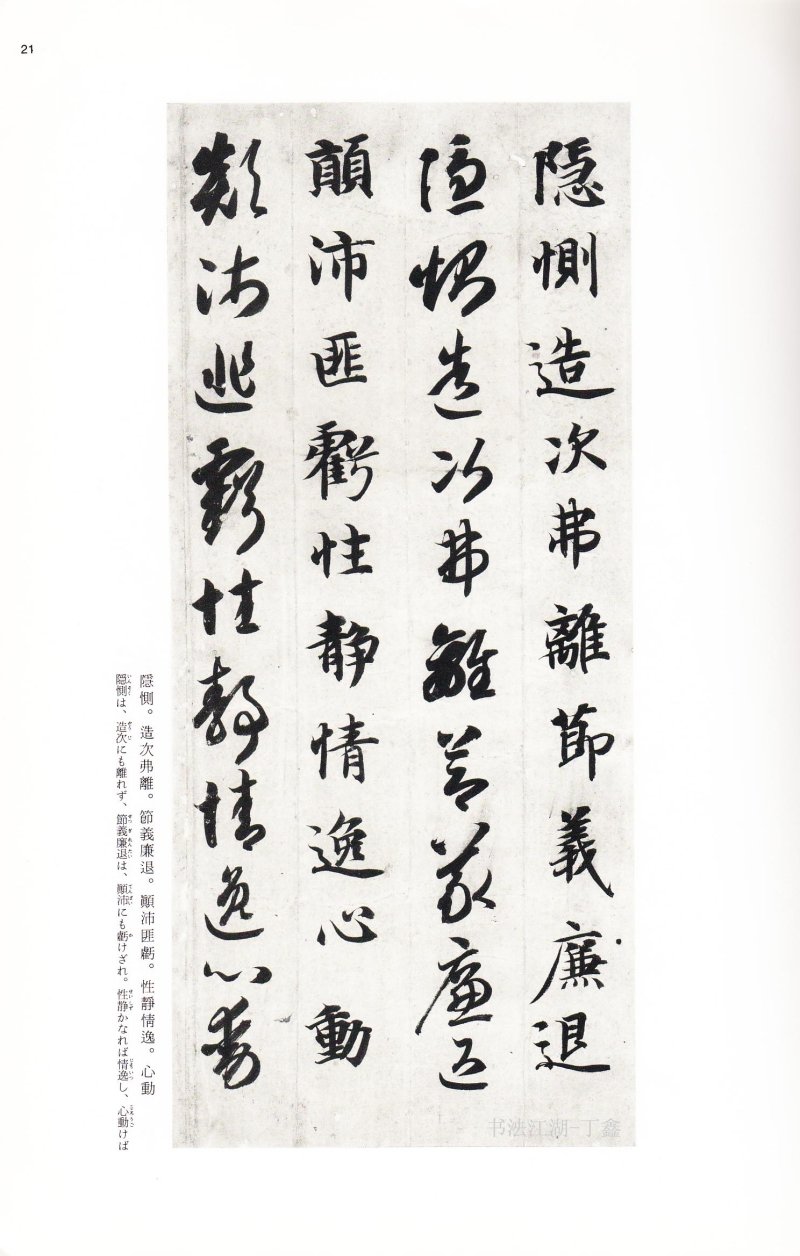 21
隠惻造次弗離節義廉退
隠惻造次弗離節義廉退
顛沛匪虧性静情逸心動
顛沛匪虧性静情逸心動
隠惻。造次弗離。節義廉退。顚沛匪虧。性靜情逸。心動
隠惻は、造次にも離れず、節義廉退は、顚沛にも虧けざれ。性静かなれば情逸し、心動けば
书法江湖-丁鑫